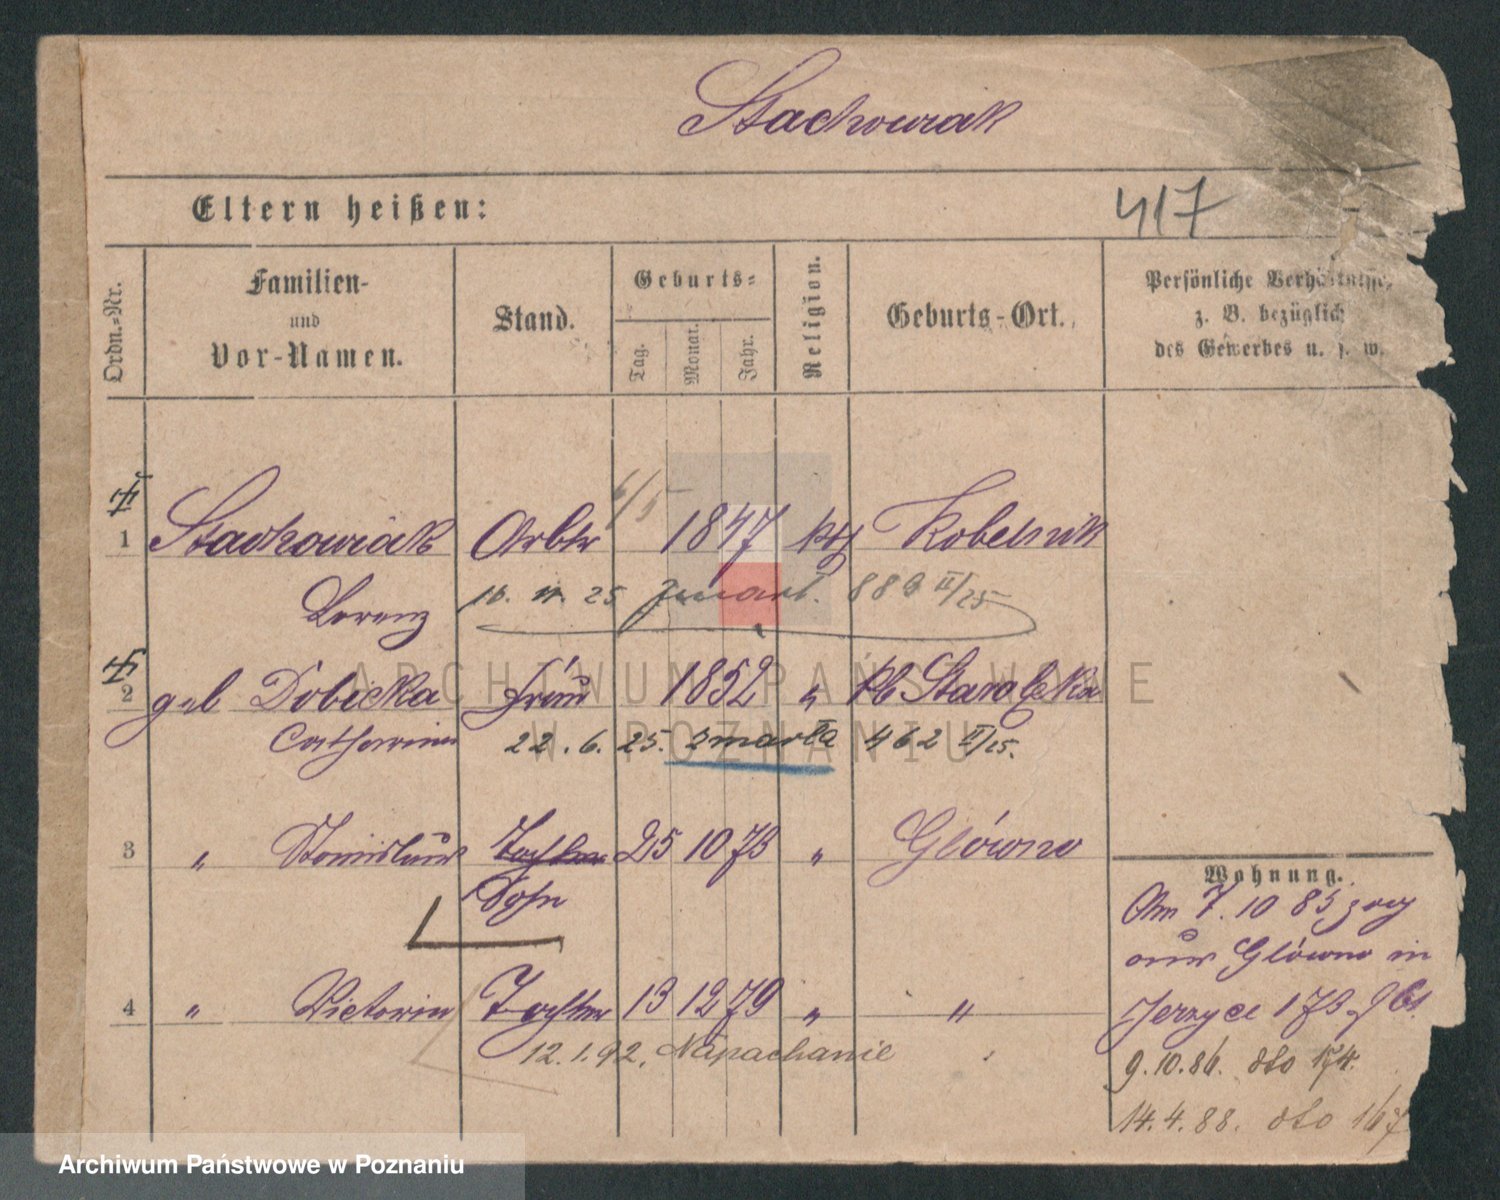 Stachowiak
Eltern heißen:
417
Ordn.-Nr.
Familien-
und
Vor-Namen.
Stand.
Geburts-
Tag.
Monat.
Jahr.
Religion.
Geburts-Ort.
Persönliche Verhältnisse,
z. B. bezüglich
des Gewerbes u. s. w.
1 Stachowiak Arbtr 1847 kth Kobelnik
Lorenz
25 zmarł. 889 II/25
2 geb Dobicka Frau 1852 " Kl Starolęka
Catharina 22.6.25. zmarła 462 II/25.
3 " Stanislaus Tochter 25 10 73 " Główno
Sohn
4 " Victoria Tochter 13 12 79 " "
12.1.92, Napachanie
Wohnung.
Am 7.10 85 zog
aus Główno in
Jerzyce 173
9.10.86. dto 174.
14.4.88. dto 167
ARCHIWUM PAŃSTWOWE
W POZNANIU
Archiwum Państwowe w Poznaniu